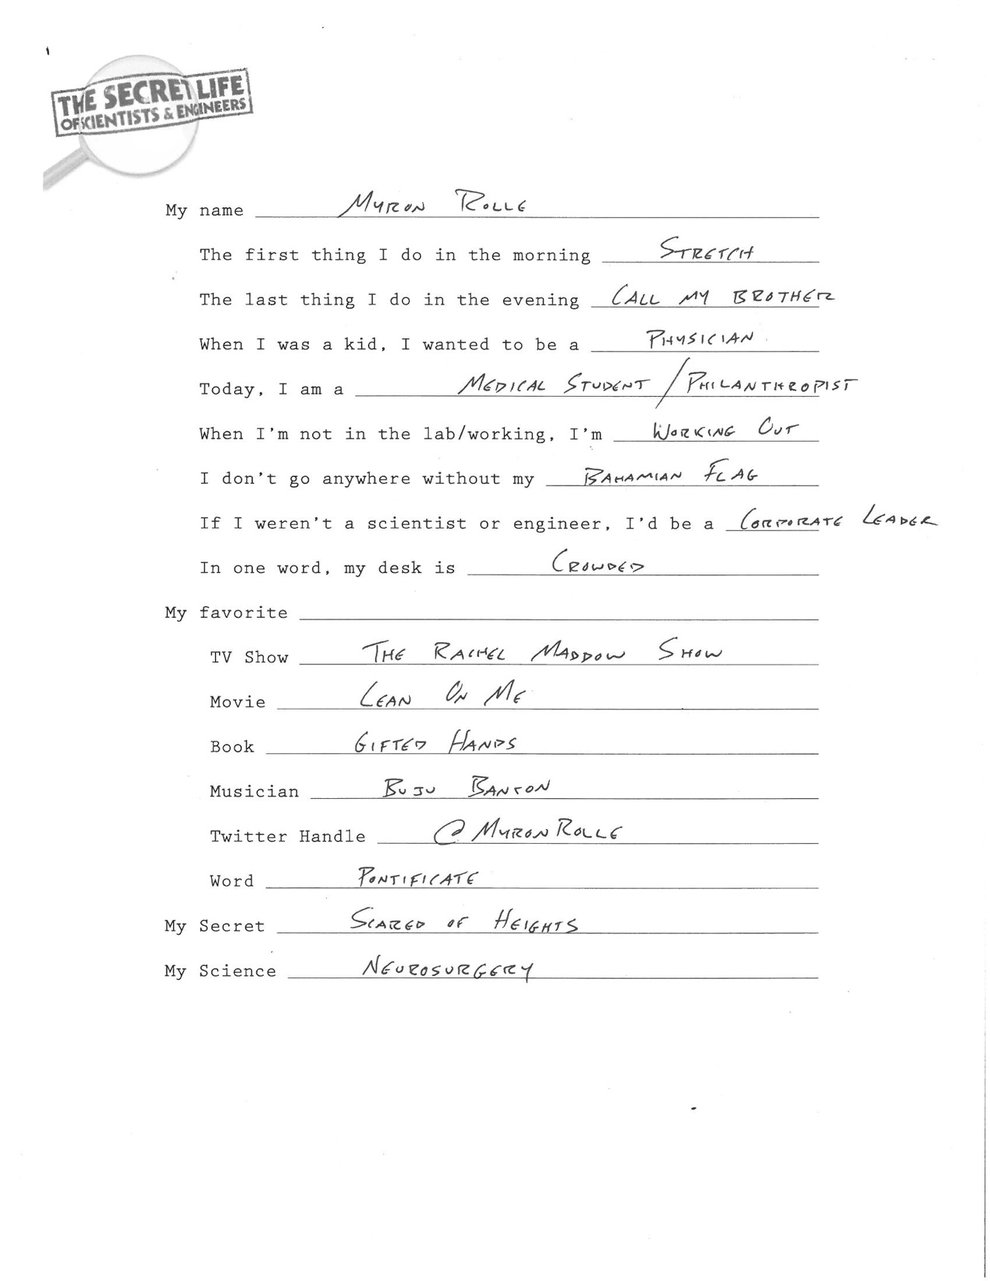 THE SECRET LIFE
OF SCIENTISTS & ENGINEERS
My name MYRON ROLLE
The first thing I do in the morning STRETCH
The last thing I do in the evening CALL MY BROTHER
When I was a kid, I wanted to be a PHYSICIAN
Today, I am a MEDICAL STUDENT / PHILANTHROPIST
When I'm not in the lab/working, I'm WORKING OUT
I don't go anywhere without my BAHAMIAN FLAG
If I weren't a scientist or engineer, I'd be a CORPORATE LEADER
In one word, my desk is CROWDED
My favorite
TV Show THE RACHEL MADDOW SHOW
Movie LEAN ON ME
Book GIFTED HANDS
Musician BUJU BANTON
Twitter Handle @MYRONROLLE
Word PONTIFICATE
My Secret SCARED OF HEIGHTS
My Science NEUROSURGERY